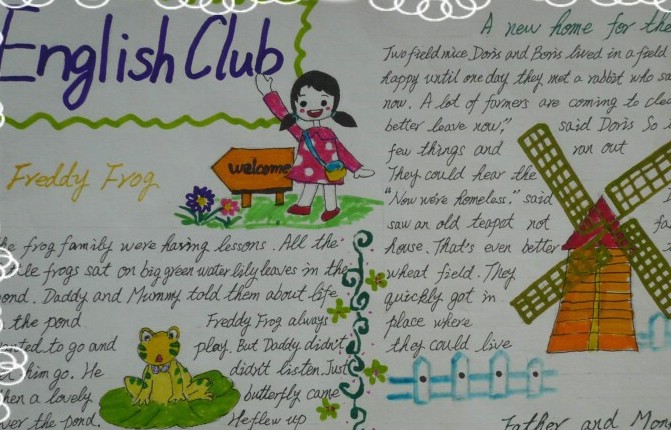 English Club
welcome
Freddy Frog
he frog family were having lessons. All the
frogs sat on big green water lily leaves in the
ond. Daddy and Mummy told them about life
the pond Freddy Frog always
to go and play. But Daddy didn't
him go. He didn't listen. Just
hen a lovely butterfly came
ver the pond. He flew up
A new home for the
Two field mice Doris and Boris lived in a field
happy until one day they met a rabbit who sa
now. A lot of farmers are coming to cle
better leave now", said Doris So
few things and ran out
They could hear the
"Now we're homeless." said
saw an old teapot not fa
house. That's even better
wheat field. They
quickly got in
place where
they could live
Father and Mon